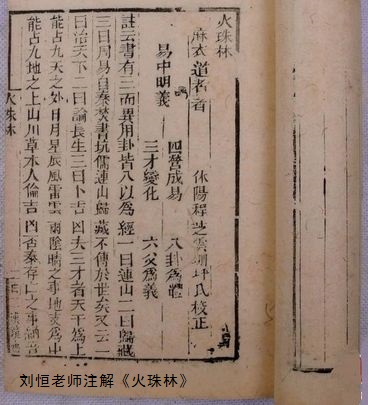 火珠林
麻衣道者著 休陽程芝雲
校正
四營成易 八卦為體
易中明義
三才變化 六爻為義
註云書有三而異用卦皆八以為經一曰連山二曰歸藏
三曰周易自秦焚書坑儒連山歸藏不傳於世矣又云一
曰治天下二曰論長生三曰卜吉凶夫三才者天為上
能占九天之外日月星辰風雷雲雨陰晴之事地支為中
能占九地之上山川草木人倫吉凶否泰存亡之事納音
火珠林
刘恒老师注解《火珠林》